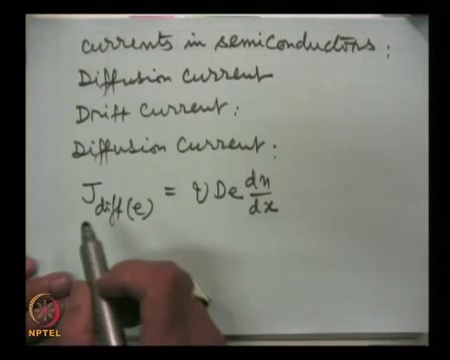 currents in semiconductors:
Diffusion Current
Drift Current:
Diffusion Current:
J diff(e) = q De dn/dx
NPTEL